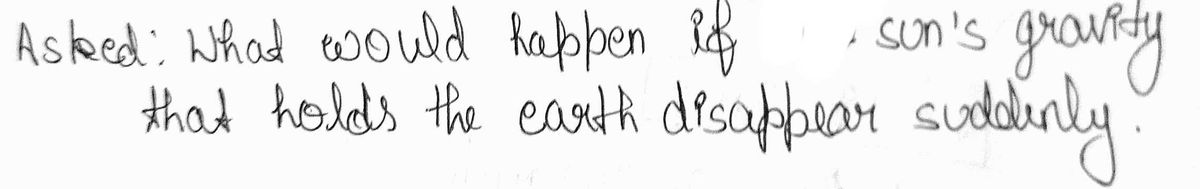 Asked: What would happen if sun's gravity
that holds the earth disappear suddenly.